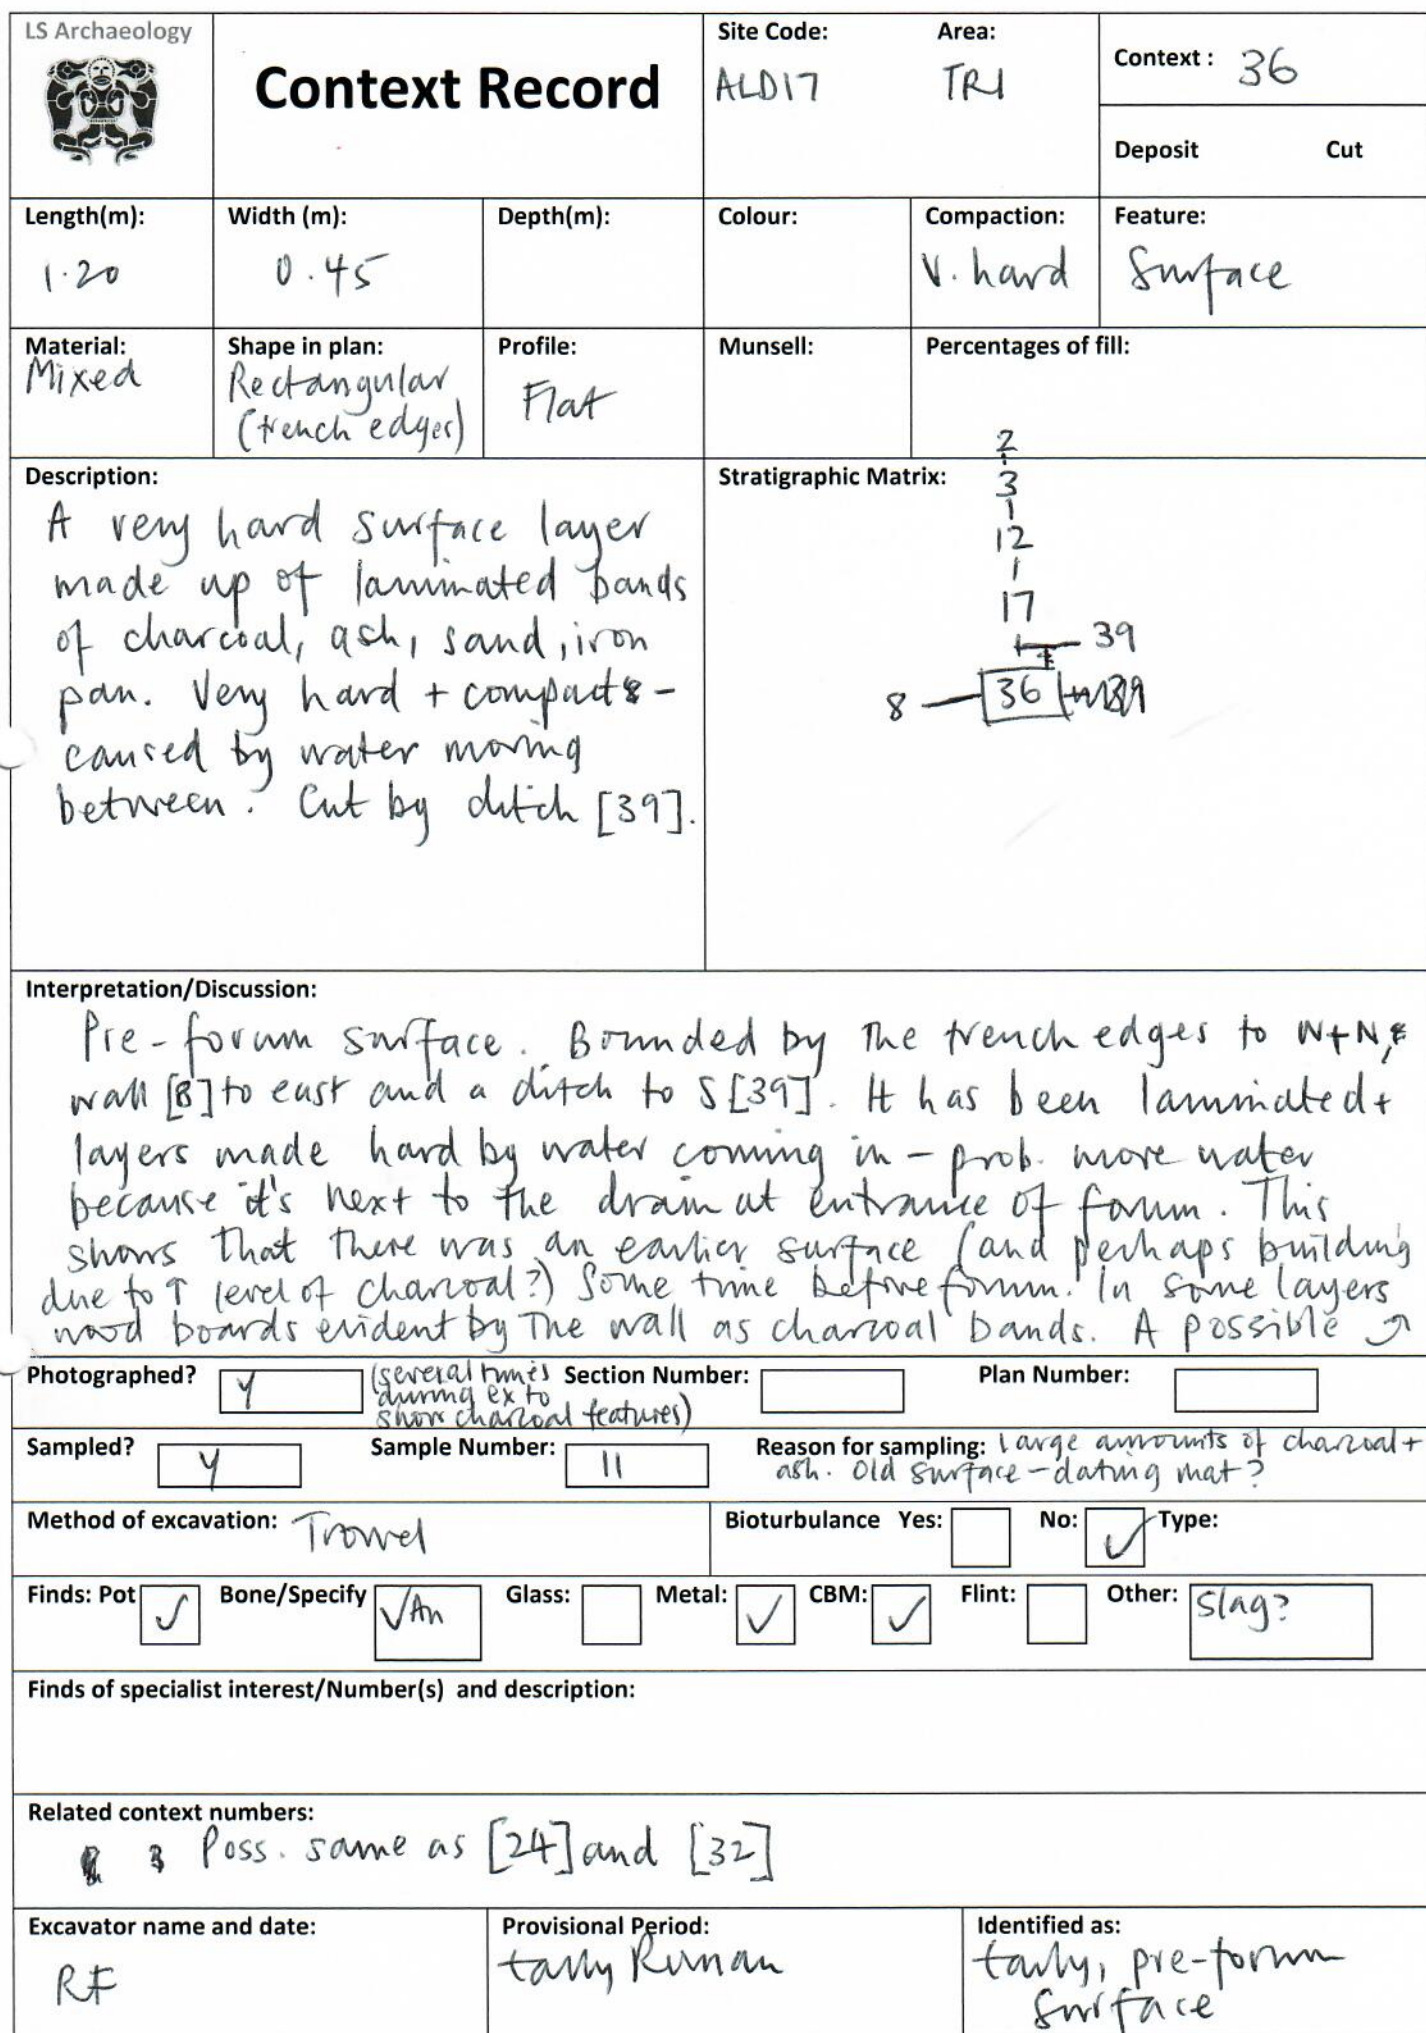 LS Archaeology
Context Record
Site Code:
ALD17
Area:
TR1
Context : 36
Deposit Cut
Length(m):
1.20
Width (m):
0.45
Depth(m):
Colour:
Compaction:
V. hard
Feature:
Surface
Material:
Mixed
Shape in plan:
Rectangular
(trench edges)
Profile:
Flat
Munsell:
Percentages of fill:
Description:
A very hard surface layer
made up of laminated bands
of charcoal, ash, sand, iron
pan. Very hard + compact -
caused by water moving
between. Cut by ditch [39].
Stratigraphic Matrix:
2
3
12
17
39
8 36
Interpretation/Discussion:
Pre-forum surface. Bounded by the trench edges to W+N,
wall [8] to east and a ditch to S [39]. It has been laminated +
layers made hard by water coming in - prob. more water
because it's next to the drain at entrance of forum. This
shows that there was an earlier surface (and perhaps building
due to ↑ level of charcoal?) Some time before forum. In some layers
wood boards evident by the wall as charcoal bands. A possible
Photographed? Y (several times
during ex to
show charcoal features)
Section Number:
Plan Number:
Sampled? Y
Sample Number: 11
Reason for sampling: Large amounts of charcoal +
ash. Old surface - dating mat?
Method of excavation: Trowel
Bioturbulance Yes: No: ✓ Type:
Finds: Pot ✓ Bone/Specify ✓An Glass: Metal: ✓ CBM: ✓ Flint: Other: Slag?
Finds of specialist interest/Number(s) and description:
Related context numbers:
Poss. same as [24] and [32]
Excavator name and date:
RF
Provisional Period:
Early Roman
Identified as:
Early, pre-forum
surface